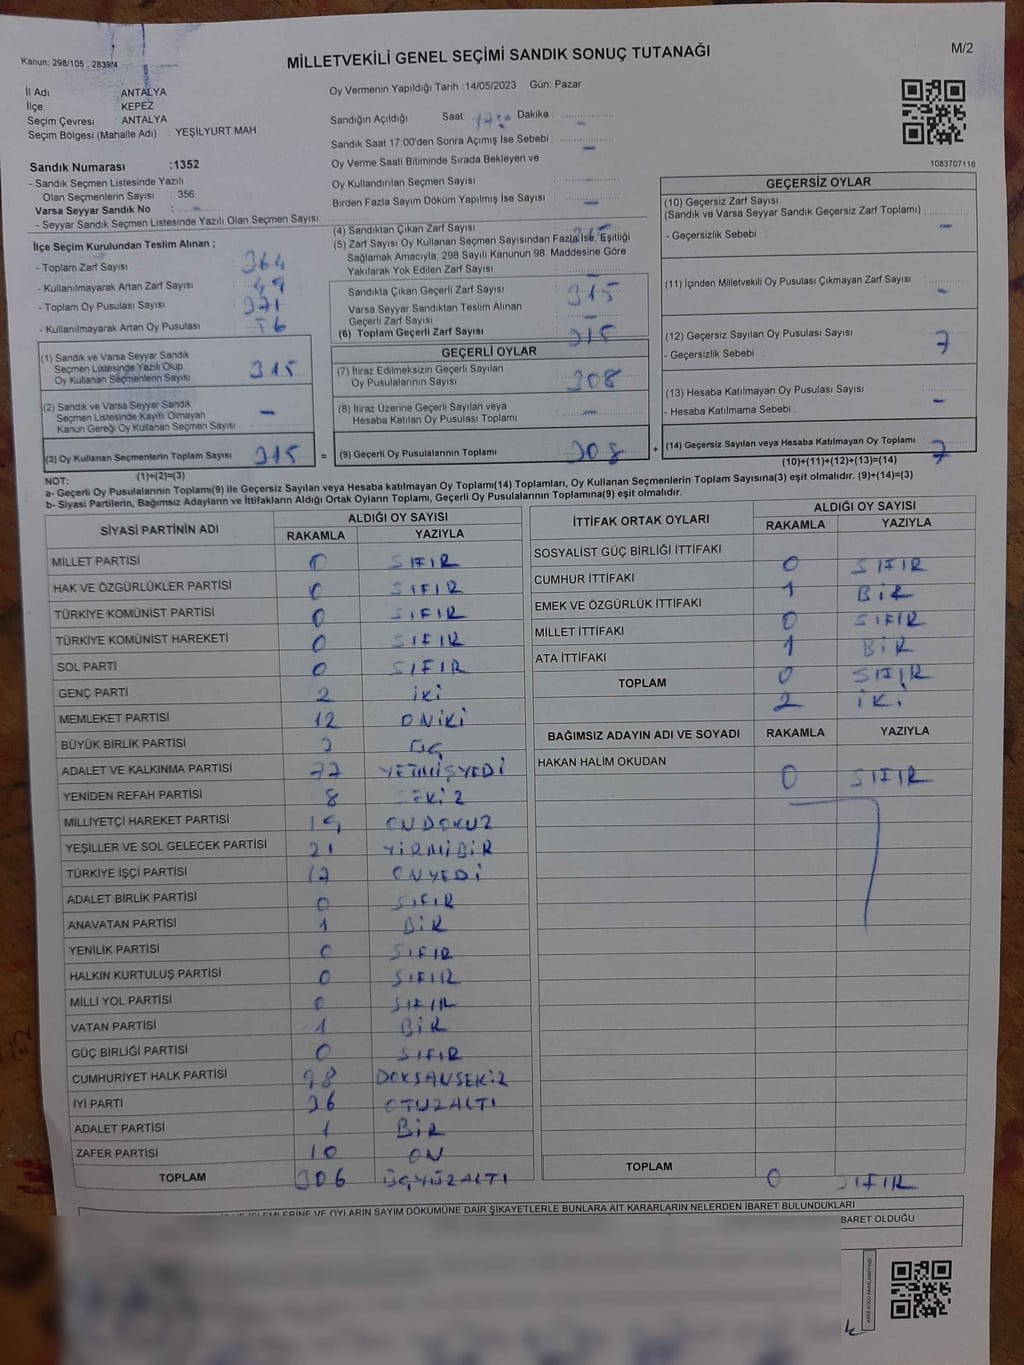 Kanun: 298/105 , 2839/4
MİLLETVEKİLİ GENEL SEÇİMİ SANDIK SONUÇ TUTANAĞI
M/2
İl Adı : ANTALYA
İlçe : KEPEZ
Seçim Çevresi : ANTALYA
Seçim Bölgesi (Mahalle Adı) : YEŞİLYURT MAH
Oy Vermenin Yapıldığı Tarih :14/05/2023 Gün: Pazar
Sandığın Açıldığı Saat: Dakika : –
Sandık Saat 17.00'den Sonra Açımış İse Sebebi : –
Oy Verme Saati Bitiminde Sırada Bekleyen ve
Oy Kullandırılan Seçmen Sayısı : –
Birden Fazla Sayım Döküm Yapılmış İse Sayısı : –
1083707116
Sandık Numarası :1352
- Sandık Seçmen Listesinde Yazılı
Olan Seçmenlerin Sayısı : 356
Varsa Seyyar Sandık No : –
- Seyyar Sandık Seçmen Listesinde Yazılı Olan Seçmen Sayısı
İlçe Seçim Kurulundan Teslim Alınan ;
- Toplam Zarf Sayısı : 364
- Kullanılmayarak Artan Zarf Sayısı : 49
- Toplam Oy Pusulası Sayısı : 371
- Kullanılmayarak Artan Oy Pusulası : 56
(1) Sandık ve Varsa Seyyar Sandık
Seçmen Listesinde Yazılı Olup
Oy Kullanan Seçmenlerin Sayısı : 315
(2) Sandık ve Varsa Seyyar Sandık
Seçmen Listesinde Kayıtlı Olmayan
Kanun Gereği Oy Kullanan Seçmen Sayısı : –
(3) Oy Kullanan Seçmenlerin Toplam Sayısı 315
(1)+(2)=(3)
(4) Sandıktan Çıkan Zarf Sayısı : 315
(5) Zarf Sayısı Oy Kullanan Seçmen Sayısından Fazla İse, Eşitliği
Sağlamak Amacıyla, 298 Sayılı Kanunun 98. Maddesine Göre
Yakılarak Yok Edilen Zarf Sayısı :
Sandıkta Çıkan Geçerli Zarf Sayısı : 315
Varsa Seyyar Sandıktan Teslim Alınan
Geçerli Zarf Sayısı : –
(6) Toplam Geçerli Zarf Sayısı : 315
GEÇERLİ OYLAR
(7) İtiraz Edilmeksizin Geçerli Sayılan
Oy Pusulalarının Sayısı : 308
(8) İtiraz Üzerine Geçerli Sayılan veya
Hesaba Katılan Oy Pusulası Toplamı : –
= (9) Geçerli Oy Pusulalarının Toplamı : 308
GEÇERSİZ OYLAR
(10) Geçersiz Zarf Sayısı
(Sandık ve Varsa Seyyar Sandık Geçersiz Zarf Toplamı) :
- Geçersizlik Sebebi : –
(11) İçinden Milletvekili Oy Pusulası Çıkmayan Zarf Sayısı : –
(12) Geçersiz Sayılan Oy Pusulası Sayısı : 7
- Geçersizlik Sebebi :
(13) Hesaba Katılmayan Oy Pusulası Sayısı : –
- Hesaba Katılmama Sebebi :
+ (14) Geçersiz Sayılan veya Hesaba Katılmayan Oy Toplamı : 7
(10)+(11)+(12)+(13)=(14)
NOT:
a- Geçerli Oy Pusulalarının Toplamı(9) ile Geçersiz Sayılan veya Hesaba katılmayan Oy Toplamı(14) Toplamları, Oy Kullanan Seçmenlerin Toplam Sayısına(3) eşit olmalıdır. (9)+(14)=(3)
b- Siyasi Partilerin, Bağımsız Adayların ve İttifakların Aldığı Ortak Oyların Toplamı, Geçerli Oy Pusulalarının Toplamına(9) eşit olmalıdır.
SİYASİ PARTİNİN ADI
ALDIĞI OY SAYISI
RAKAMLA YAZIYLA
MİLLET PARTİSİ 0 SIFIR
HAK VE ÖZGÜRLÜKLER PARTİSİ 0 SIFIR
TÜRKİYE KOMÜNİST PARTİSİ 0 SIFIR
TÜRKİYE KOMÜNİST HAREKETİ 0 SIFIR
SOL PARTİ 0 SIFIR
GENÇ PARTİ 2 İKİ
MEMLEKET PARTİSİ 12 ONİKİ
BÜYÜK BİRLİK PARTİSİ 3 ÜÇ
ADALET VE KALKINMA PARTİSİ 77 YETMİŞYEDİ
YENİDEN REFAH PARTİSİ 8 SEKİZ
MİLLİYETÇİ HAREKET PARTİSİ 19 ONDOKUZ
YEŞİLLER VE SOL GELECEK PARTİSİ 21 YİRMİBİR
TÜRKİYE İŞÇİ PARTİSİ 17 ONYEDİ
ADALET BİRLİK PARTİSİ 0 SIFIR
ANAVATAN PARTİSİ 1 BİR
YENİLİK PARTİSİ 0 SIFIR
HALKIN KURTULUŞ PARTİSİ 0 SIFIR
MİLLİ YOL PARTİSİ 0 SIFIR
VATAN PARTİSİ 1 BİR
GÜÇ BİRLİĞİ PARTİSİ 0 SIFIR
CUMHURİYET HALK PARTİSİ 98 DOKSANSEKİZ
İYİ PARTİ 36 OTUZALTI
ADALET PARTİSİ 1 BİR
ZAFER PARTİSİ 10 ON
TOPLAM 306 ÜÇYÜZALTI
İTTİFAK ORTAK OYLARI
ALDIĞI OY SAYISI
RAKAMLA YAZIYLA
SOSYALİST GÜÇ BİRLİĞİ İTTİFAKI 0 SIFIR
CUMHUR İTTİFAKI 1 BİR
EMEK VE ÖZGÜRLÜK İTTİFAKI 0 SIFIR
MİLLET İTTİFAKI 1 BİR
ATA İTTİFAKI 0 SIFIR
TOPLAM 2 İKİ
BAĞIMSIZ ADAYIN ADI VE SOYADI RAKAMLA YAZIYLA
HAKAN HALİM OKUDAN 0 SIFIR
TOPLAM 0 SIFIR
İŞLEMLERİNE VE OYLARIN SAYIM DÖKÜMÜNE DAİR ŞİKAYETLERLE BUNLARA AİT KARARLARIN NELERDEN İBARET BULUNDUKLARI
BARET OLDUĞU